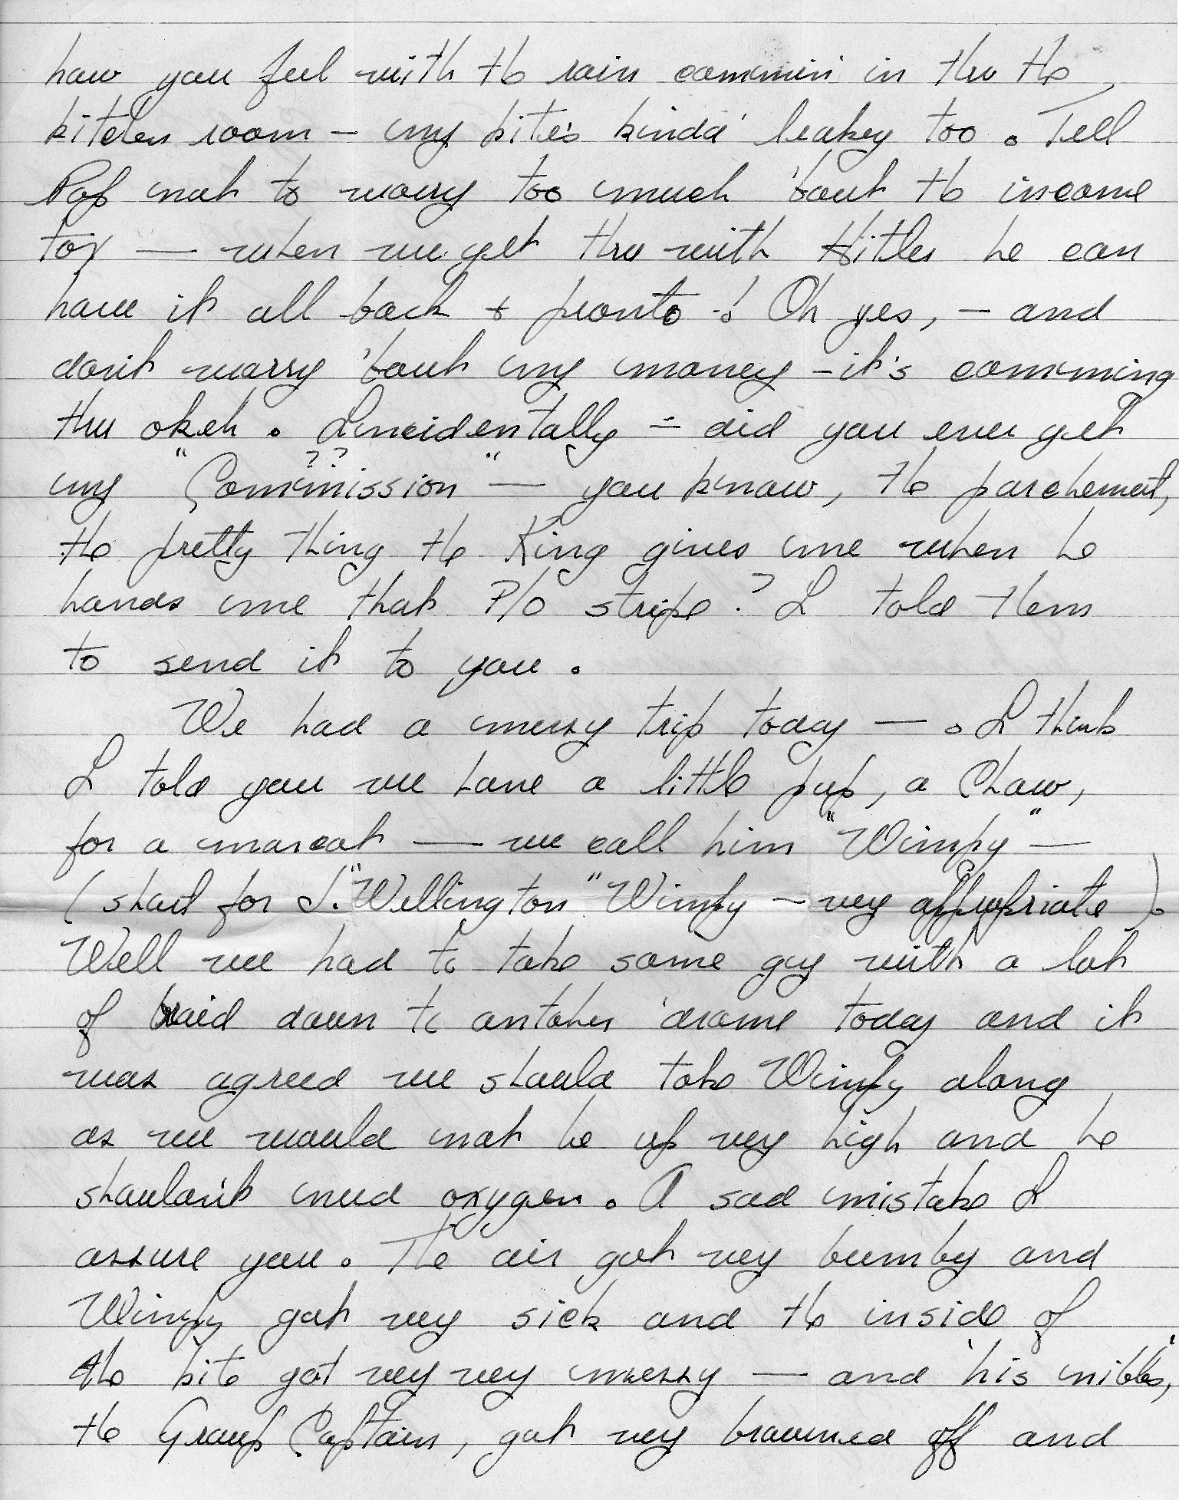 how you feel with the rain commin' in thru the
kitchen room – my kite's kinda' leakey too. Tell
Pop not to worry too much 'bout the income
tax — when we get thru with Hitler he can
have it all back & pronto! Oh yes, – and
don't worry 'bout my money – it's comming
thru okeh. Inncidentally – did you ever get
my "Commission"?? — you know, the parchement,
the pretty thing the King gives me when he
hands me that P/O stripe? I told them
to send it to you.
We had a merry trip today —. I think
I told you we have a little pup, a Chow,
for a mascot — we call him "Wimpy" –
(short for J. "Wellington" Wimpy – very appropriate).
Well we had to take some guy with a lot
of braid down to another 'drome today and it
was agreed we should take Wimpy along
as we would not be up very high and he
shouldn't need oxygen. A sad mistake I
assure you. The air got very bumby and
Wimpy got very sick and the inside of
the kite got very very messy — and 'his nibbs,'
the Group Captain, got very browned off and